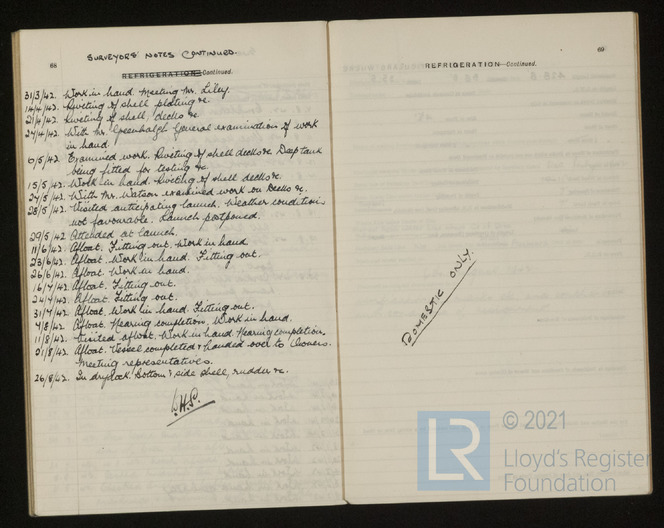 68
SURVEYORS' NOTES CONTINUED.
REFRIGERATION—Continued.
31/3/42. Work in hand. Meeting Mr. Liley.
14/4/42. Riveting of shell plating &c.
21/4/42. Riveting of shell, decks &c
27/4/42. With Mr. Greenhalgh General examination of work
in hand.
6/5/42. Examined work. Riveting of shell decks &c Deep tank
being fitted for testing &c.
15/5/42. Work in hand. Riveting of shell decks &c
27/5/42. With Mr. Watson examined work on Decks &c.
28/5/42. Visited anticipating launch. Weather conditions
not favourable. Launch postponed.
29/5/42. Attended at launch.
11/6/42. Afloat. Fitting out. Work in hand.
23/6/42. Afloat. Work in hand. Fitting out.
26/6/42. Afloat. Work in hand.
16/7/42. Afloat. Fitting out.
24/7/42. Afloat. Fitting out.
31/7/42. Afloat. Work in hand. Fitting out.
7/8/42. Afloat. Nearing completion. Work in hand.
11/8/42. Visited afloat. Work in hand. Nearing completion.
/8/42. Afloat. Vessel completed & handed over to Owners.
Meeting representatives.
26/8/42. In drydock. Bottom & side shell, rudder &c.
69
REFRIGERATION—Continued.
DOMESTIC ONLY.
LR
© 2021
Lloyd's Register
Foundation